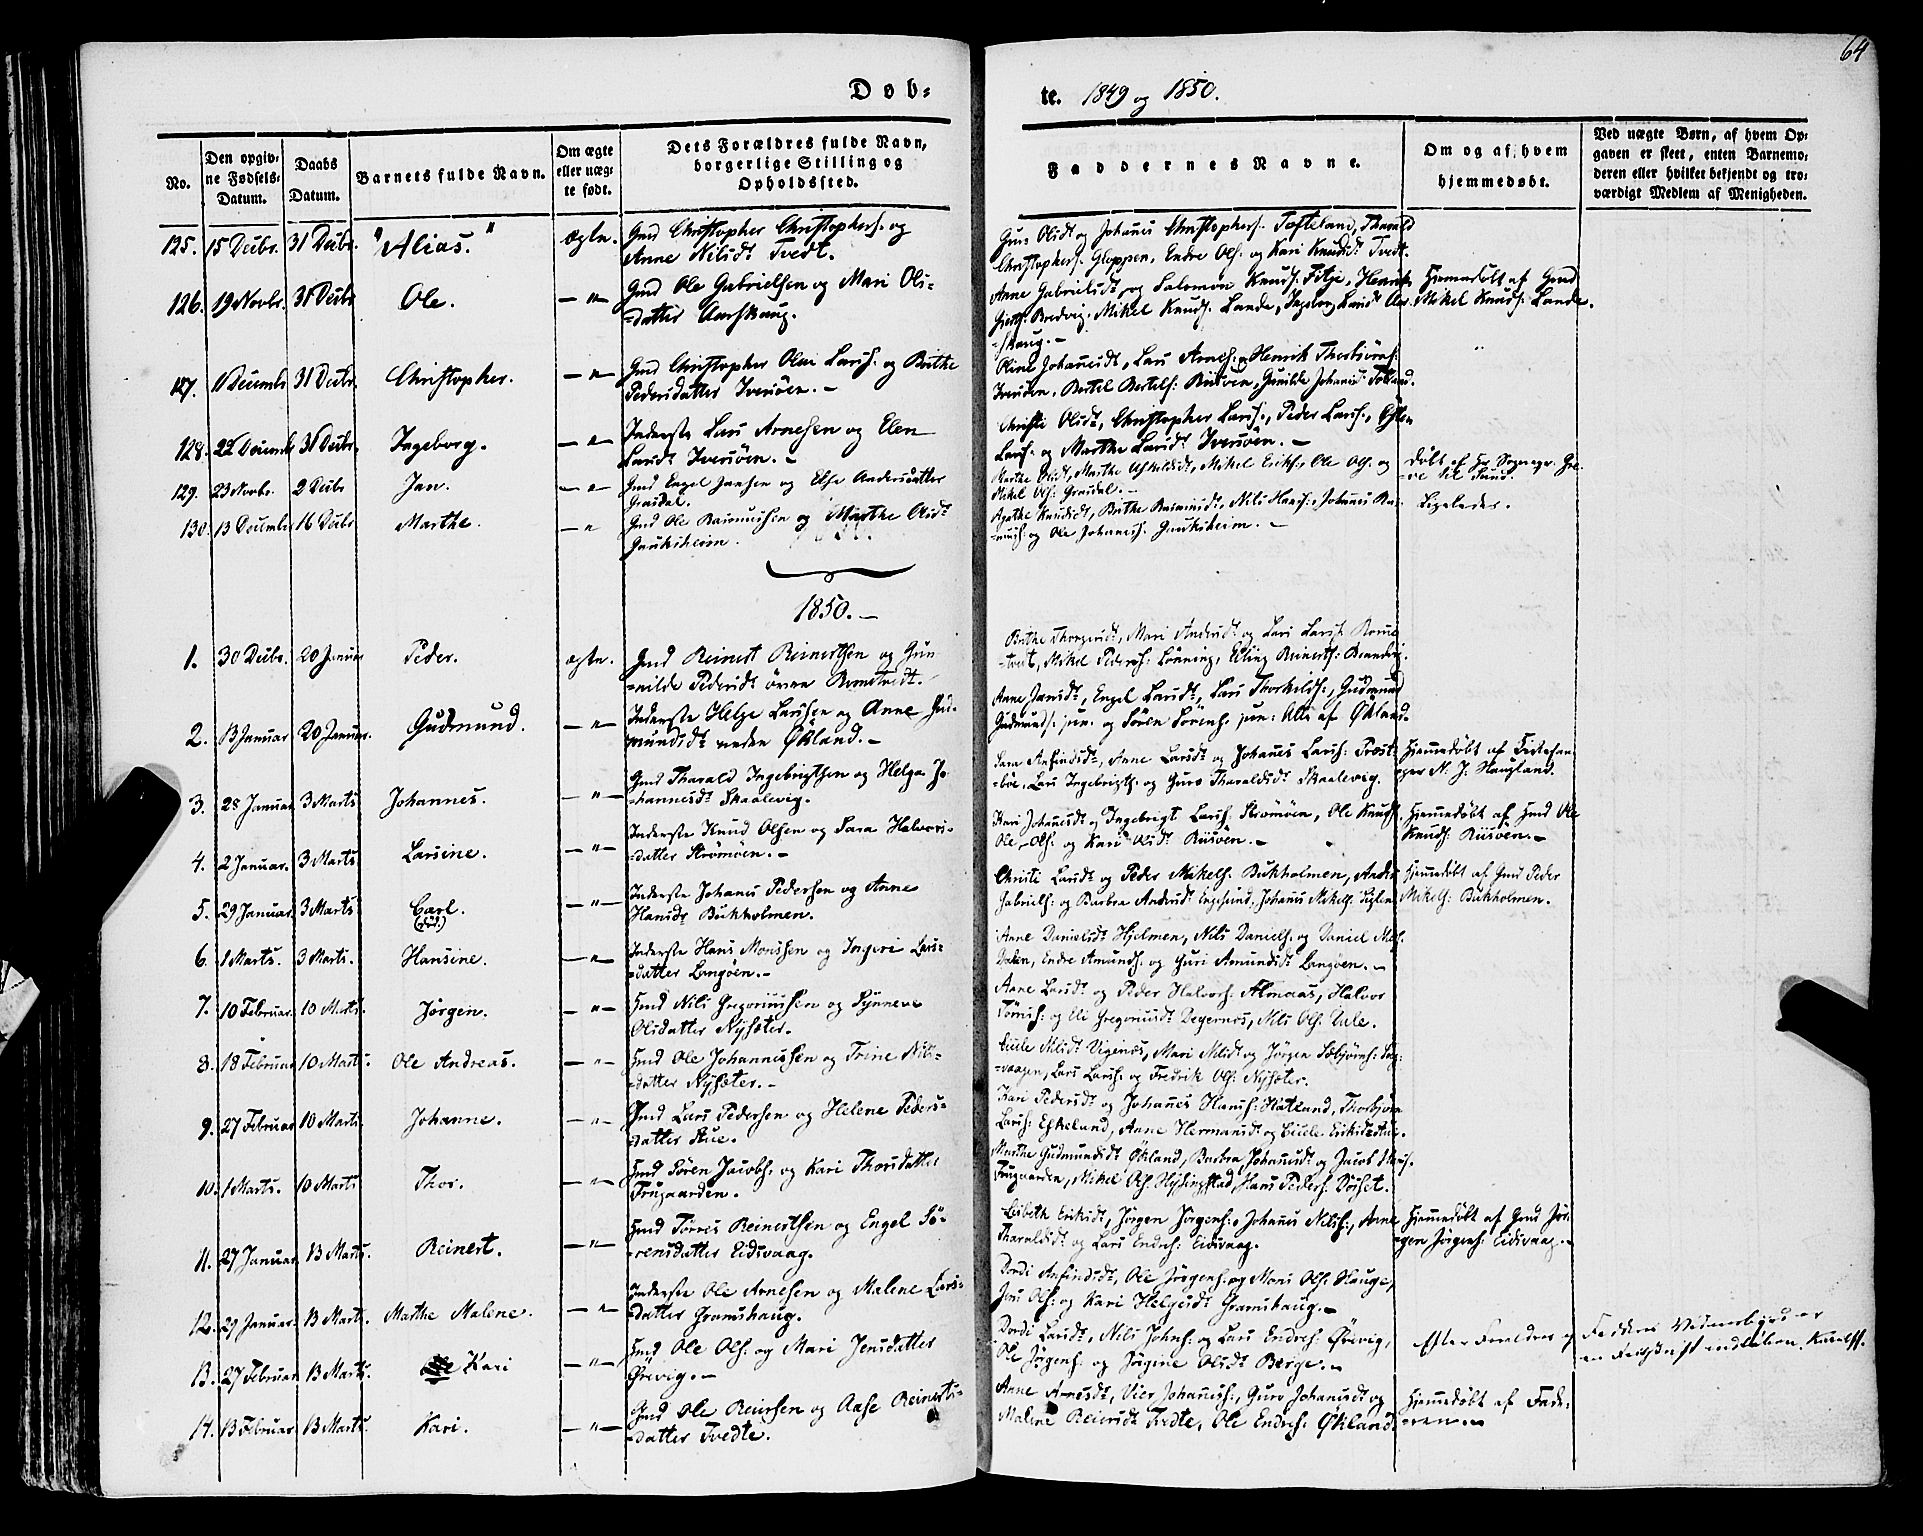 64
Døb-
te. 1849 og 1850.
No.
Den opgiv-
ne Fødsels-
Datum.
Daabs
Datum.
Barnets fulde Navn.
Om ægte
eller uæg-
te født.
Dets Forældres fulde Navn,
borgerlige Stilling og
Opholdssted.
Faddernes Navne.
Om og af hvem
hjemmedøbt.
Ved uægte Børn, af hvem Op-
gaven er skeet, enten Barnemo-
deren eller hvilket bekjendt og tro-
værdigt Medlem af Menigheden.
125. 15 Decbr. 31 Decbr. "Alias." ægte. Gmd Christopher Christophers. og
Anne Nilsdt Tvedt.
Guro Olsdt og Johannes Christophers. Tofteland, Tharald
Christophers. Gloppen, Endre Ols. og Kari Knudsdt Tvedt.
126. 19 Novbr. 31 Decbr Ole. — " — Gmd Ole Gabrielsen og Mari Ols-
-datter Aarskaug.
Anne Gabrielsdt, og Salomon Knuds. Fitje, Henrik
Bredvig, Mikel Knuds. Lande, Ingeborg Larsdt Aar-
-skaug. —
Hjemmedøbt af Gmd
Mikel Knuds. Lande.
127. 11 Decembr 31 Decbr. Christopher. — " — Gmd Christopher Olai Lars. og Brithe
Pedersdatter Iversöen. —
Oline Johannesdt, Lars Arnes. og Henrik Thorbjörns.
Iversöen, Bertel Bertels. Riisöen, Gunilde Johannsdt
128. 22 Decemb 31 Decbr. Ingeborg. — " — Inderste Lars Arnesen og Elen
Larsdt Iversöen. —
Christi Olsdt, Christopher Lars., Peder Lars.,
Lars. og Marthe Larsdt Iversöen. —
129. 23 Novbr. 2 Decbr Jan. — " — Gmd Engel Jansen og Else Andersdatter
Grasdal.
Marthe Olsdt, Marthe Mikel Eriks., Ole Ols. og
Mikel Ols. Grasdal. —
Döbt af Hr. Sognepr.
130. 13 Decembr 16 Decbr Marthe. — " Gmd Ole Rasmussen og Marthe Olsdt
Gauksheim.
Agathe Knudsdt, Brithe Rasmusdt, Nils Hans., Johannes Ras-
-mus. og Ole Johannes. Gauksheim. —
Ligeledes.
1850. —
1. 30 Decbr. 20 Januar Peder. ægte. Gmd Reinert Reinertsen og Gun-
-nilde Pedersdt övre
Brithe Mari Andersdt og Lars Lars.
-tvet, Mikel Peders. Lönning, Elling Reinerts.
2. 13 Januar 20 Januar. Gudmund. — " — Inderste Helge Larssen og Anne Gud-
mundsdt nedre Økland. —
Anne Jansdt, Engel Larsdt, Lars Thorkilds., Gudmund
Gudmunds. jun: og Sören Sörens. jun: Alle af Økland.
3. 28 Januar 3 Marts Johannes. — " — Gmd Tharald Ingebrigtsen og Helga Jo-
-hannesdt Skaalevig.
Sara Anfindsdt, Anne Larsdt og Johannes Lars. Prest-
-böe, Lars Ingebrigts. og Guro Tharaldsdt Skaalevig.
Hjemmedöbt af Kirkesan-
ger N. J. Haugland.
4. 2 Januar. 3 Marts Larsine. — " — Inderste Knud Olsen og Sara Halvors-
-datter Strömöen. —
Kari Johannesdt og Ingebrigt Lars. Strömöen, Ole Knuds.
Ole Ols. og Kari Olsdt Riisöen. —
Hjemmedöbt af Gmd Ole
Knuds. Riisöen. —
5. 29 Januar. 3 Marts Carl.
— " — Inderste Johannes Pedersen og Anne
Hansdt Bukholmen.
Christi Larsdt og Peder Mikels. Bukholmen, Anders
Gabriels. og Barbra Andersdt Engesund, Johannes Mikels. Siglen
Hjemmedöbt af Gmd Peder
Mikels. Bukholmen.
6. 1 Marts. 3 Marts. Hansine. — " — Inderste Hans Monssen og Ingeri Lars-
-datter Langöen. —
Anne Danielsdt Hjelmen, Nils Daniels. og Daniel
Endre Amunds. og Guri Amundsdt Langöen. —
7. 10 Februar. 10 Marts. Jørgen. — " — Gmd Nils Gregoriussen og Synneve
Olsdatter Nyseter.
Anne Larsdt og Peder Halvors. Almaas, Halvor
og Eli Gregoriusdt Degernes, Nils Ols.
8. 18 Februar 10 Marts. Ole Andreas. — " — Gmd Ole Johannessen og Trine Nils-
-datter Nyseter. —
Cicele Nilsdt Vigenes, Mari Nilsdt og Jørgen
-vaagen, Lars Lars. og Fredrik Ols. Nyseter.
9. 27 Februar 10 Marts. Johanne. — " — Gmd Lars Pedersen og Helene Peders-
datter Stue.
Kari Pedersdt og Johannes Hans. Hatland, Thorbjörn
Lars. Eskeland, Anne Hermansdt og Cicele Eriksdt Stue.
10. 1 Marts. 10 Marts Thor. — " — Gmd Sören Jacobs. og Kari Thorsdatter
Frugaarden.
Marthe Gudmundsdt Økland, Barbra Johannesdt og Jacob
Frugaarden, Mikel Ols. Hystingstad, Hans Peders.
11. 27 Januar 13 Marts. Reinert. — " — Gmd Törres Reinertsen og Engel Sö-
-rensdatter Eidsvaag.
Lisbeth Eriksdt, Jörgen Jörgens., Johannes Nils., Anne
Tharaldsdt og Lars Endres. Eidsvaag.
Hjemmedöbt af Gmd Jör-
gen Jörgens. Eidsvaag. —
12. 29 Januar. 13 Marts. Marthe Malene. — " — Inderste Ole Arnesen og Malene Lars-
datter Gramshaug.
Dordi Anfindsdt, Ole Jörgens. og Mons Ols. Hauge,
Jens Ols. og Kari Helgesdt Gramshaug. —
13. 27 Februar 13 Marts. Kari — " — Gmd Ole Ols. og Mari Jensdatter
Örevig. —
Dordi Larsdt, Nils Johns. og Lars Endres. Örevig,
Ole Jörgens. og Jörgine Olsdt Berge. —
Efter Foreldres og Fadderes
14. 13 Februar. 13 Marts. Kari. — " — Gmd Ole Reiersen og Aase Reinerts-
datter Tvedte.
Anne Arnesdt, Vier Johannes., Guro Johannesdt og
Malene Reiersdt Tvedte, Ole Endres. Økland.
Hjemmedöbt af Fade-
-ren. —